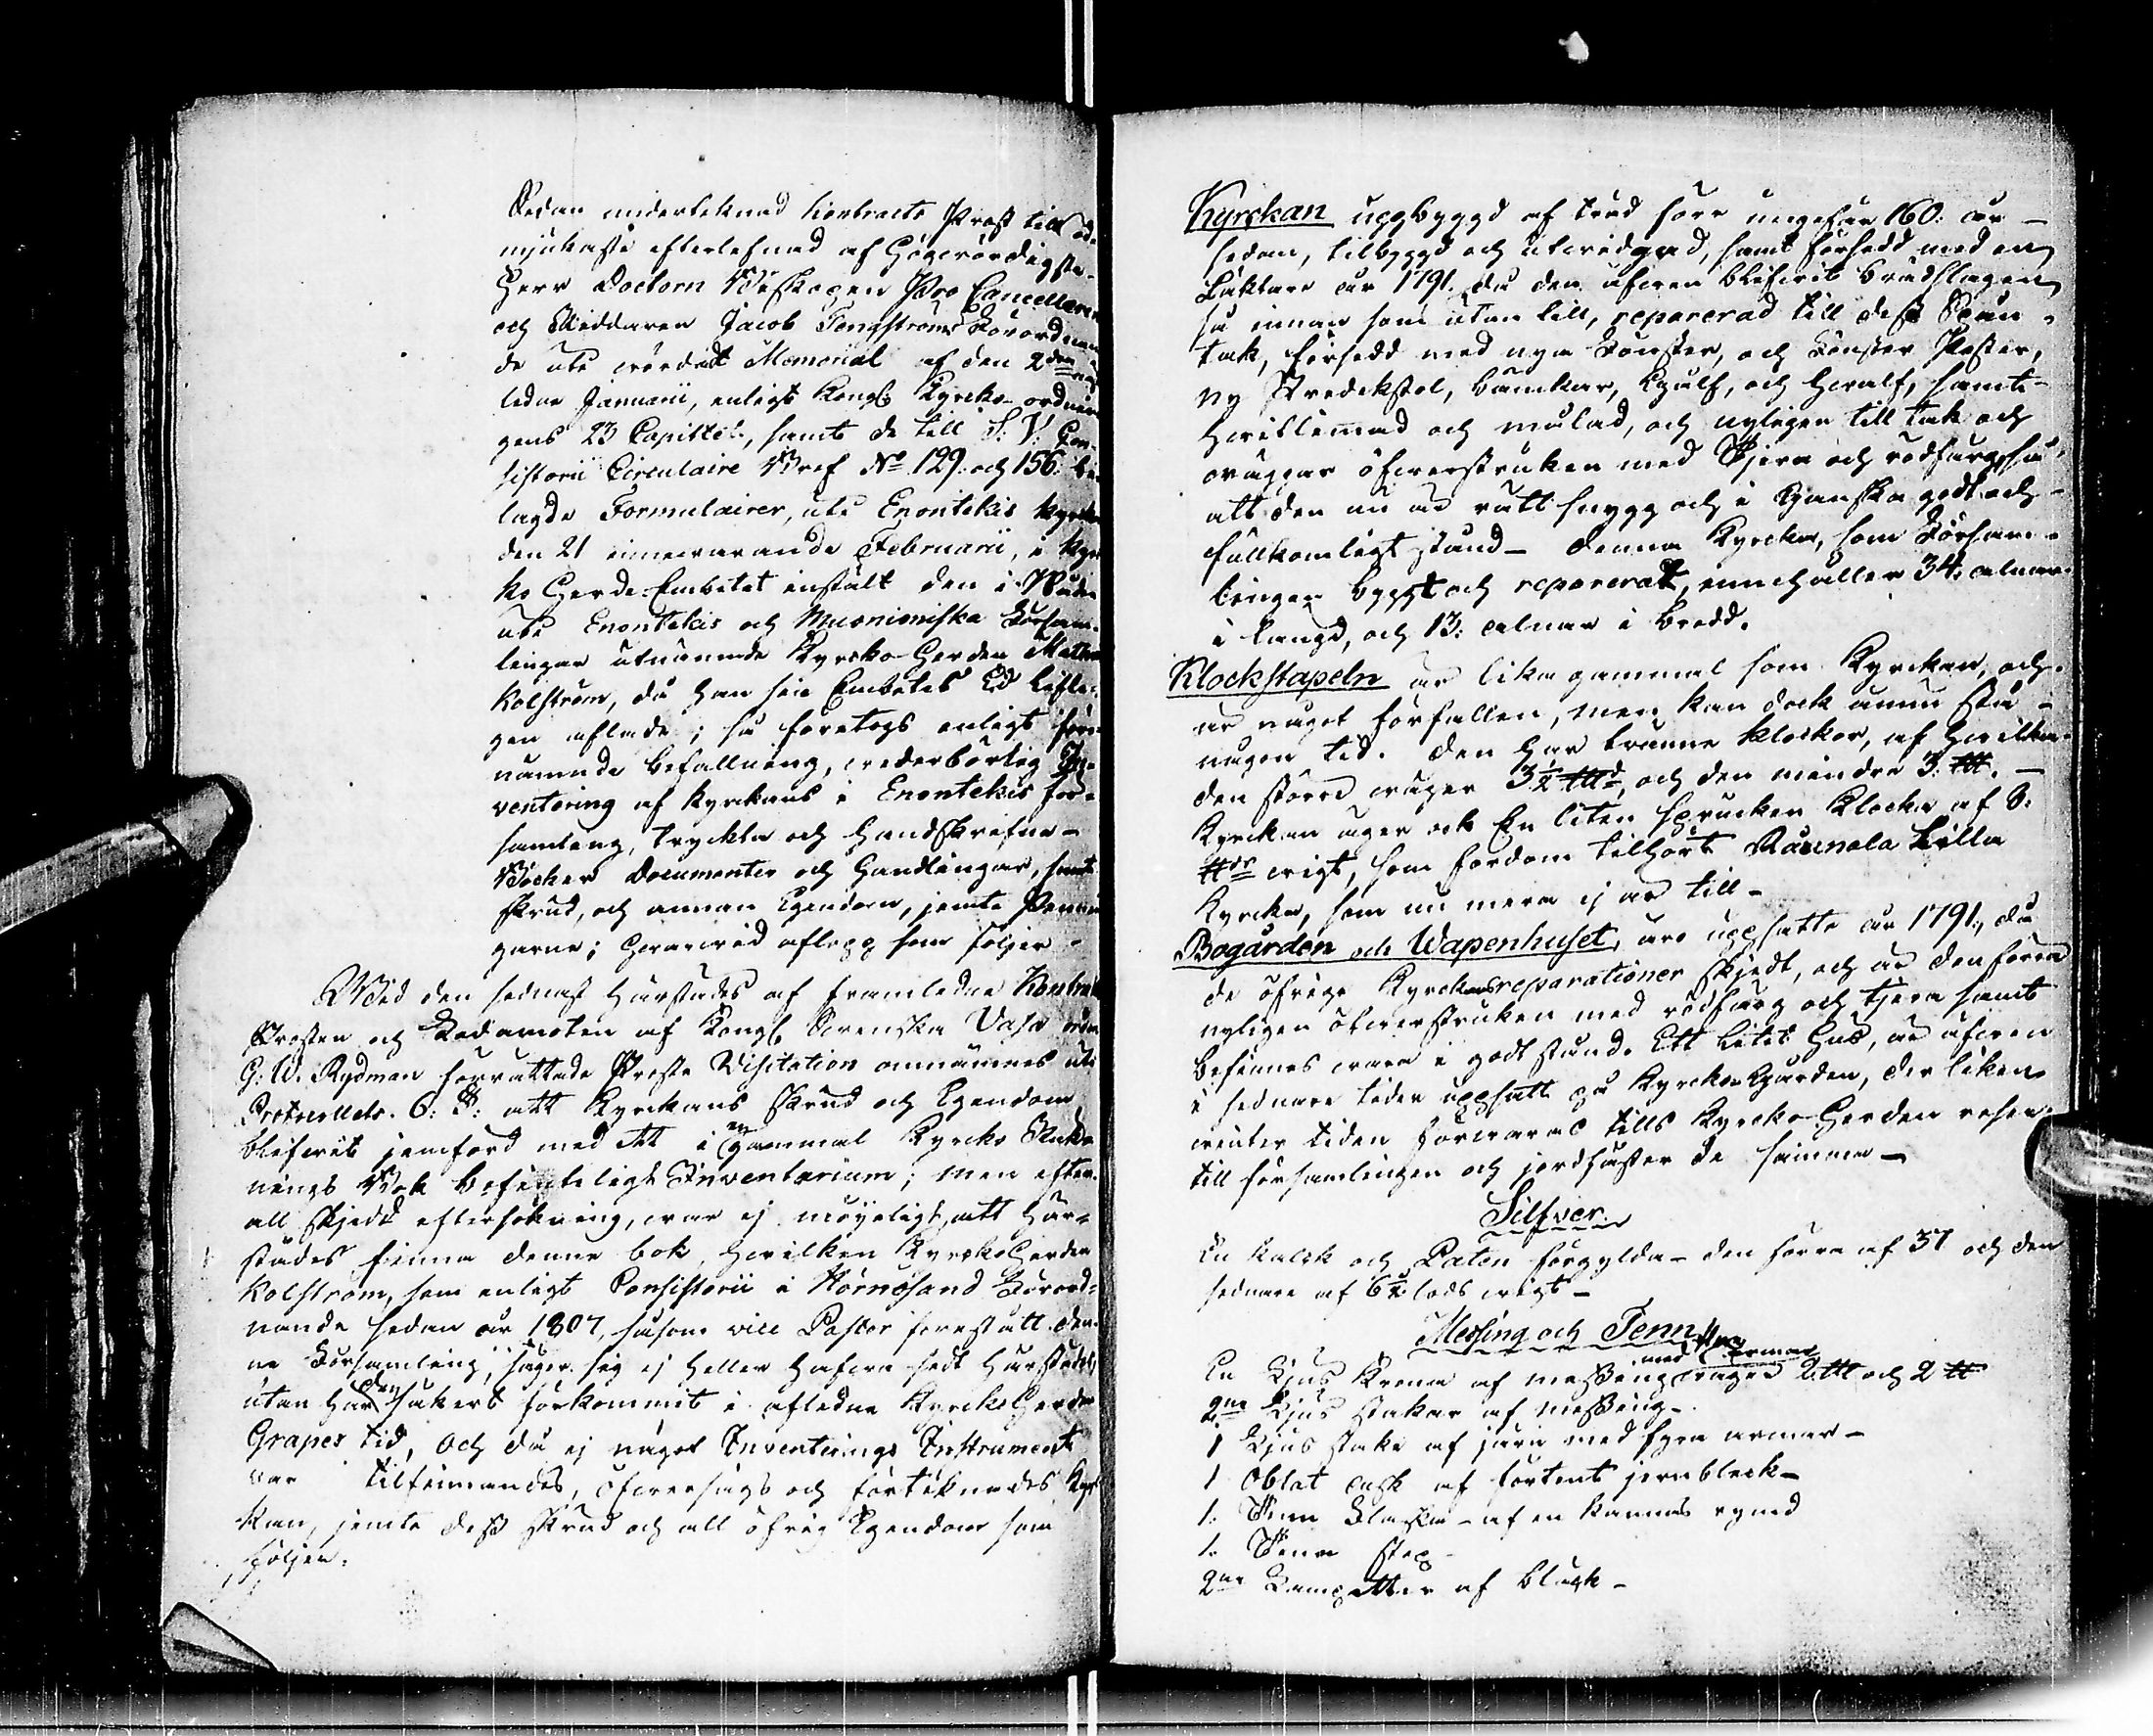 Sedan undertecknad Contracts Prost till öd-
mjukaste efterlefnad af Högvördigste
Herr Doctorn Biskopen Pro Cancelleren
och Riddaren Jacob Tengströms Förordnan-
de uti wördadt Memorial af den 2den näst-
ledne Januarii, enligt Kongl. Kyrcko-ordnin-
gens 23 Capittel, samt de till S: V: Con-
sistorii Circulaire Bref No 129. och 156. bi-
lagde Formulairer, uti Enontekis Kyrcka
den 21 innewarande Februarii, i Kyr-
ko Herde-Embetet instält den i Nåder
uti Enontekis och Muonioniska Försam-
lingar utnämnde Kyrcko-Herden Mathias
Kolström, då han sin Embetes Ed befli-
gen aflade; så företogs enligt för-
nämnde befallning, wederbörlig In-
ventering af Kyrckans i Enontekis för-
samling, tryckta och Handskrifne
Böcker Documenter och Handlingar, samt
Skrud, och annan Egendom, jemte Pennin-
garne; hwarwid aflopp som följer
Wid den sednast härstädes af framledne Contracts
Prosten och Ledamoten af Kongl. Svenska Vasa orden
G: W. Rydman förrättade Prosts Visitation omnämnes uti
Protocollets 6: §: att Kyrckans skrud och Egendom
blifwit jemförd med ett i en gammal Kyrcko Räke-
nings Bok befinteligt Inventarium; men efter
all skjedd eftersökning, war ej möyeligt, att här-
städes finna denne bok, hwilken Kyrcko Herden
Kolström, som enligt Consistorii i Hörnösand Förord-
nande sedan år 1807, såsom vice Pastor förestått den-
ne Församling, säger sig ej heller hafwa sedt härstädes,
utan har den säkert förkommit i afledne Kyrcko Herden
Grapes tid, Och då ej något Inventerings Instrument
var tilfinnandes, öfwersågs och förtecknades Kyr-
kan, jemte dess skrud och all öfrig Egendom som
följer.
Kyrckan uppbyggd af träd förr ungefär 160. år
sedan, tilbyggd och utwidgad, samt försedd med en
Läktare år 1791. då den äfwen blifwit brädslagen
så innan som utan till, reparerad till dess Spån-
tak, försedd med nya Fönster, och Fönster Poster,
ny Predikstol, bänckar, Golf, och Hwalf, samt
Hwitlimmad och målad, och nyligen till tak och
wäggar öfwerstruken med Tjera och rödfärg, så
att den nu är rätt snygg och i Ganska godt och
fullkomligt stånd - Denna Kyrcka, som Försam-
lingen byggt och reparerat, innehåller 34. alnar
i längd, och 13: alnar i bredd.
Klockstapeln är lika gammal som Kyrckan, och
är något förfallen, men kan dock ännu stå
någon tid. Den har twänne Klockor, af hwilka
den större wäger 3½ och den mindre 3.
Kyrckan äger ock En liten sprucken Klocka af 8:
wigt, som fordom tilhört Rounala Lilla
Kyrcka, som nu mera ej är till-
Bogården och Wapenhuset, äro uppsatte år 1791, då
de öfrige Kyrckans reparationer skjedt, och är den förra
nyligen öfwerstruken med rödfärg och tjera samt
befinnes wara i godt stånd. Ett litet hus, är äfwen
i sednare tider uppsatt på Kyrcko-Gården, der liken
winter tiden förwaras tills Kyrcko-Herden reser
till församlingen och jordfäster de samma -
Silfver.
En Kalck och Paten förgylda - den förra af 37 och den
sednare af 6½ lods wigt -
Messing och Tenn.
En Ljus Krona af messing med armar wäger 2 och 2
2ne Ljus stakar af messing -
1 Ljus stake af jern med fyra armar -
1 Oblat ask af förtent jernbleck -
1. Tenn Flaska - af en kannas rymd
1. Tenn stop -
2ne Lampetter af bleck -